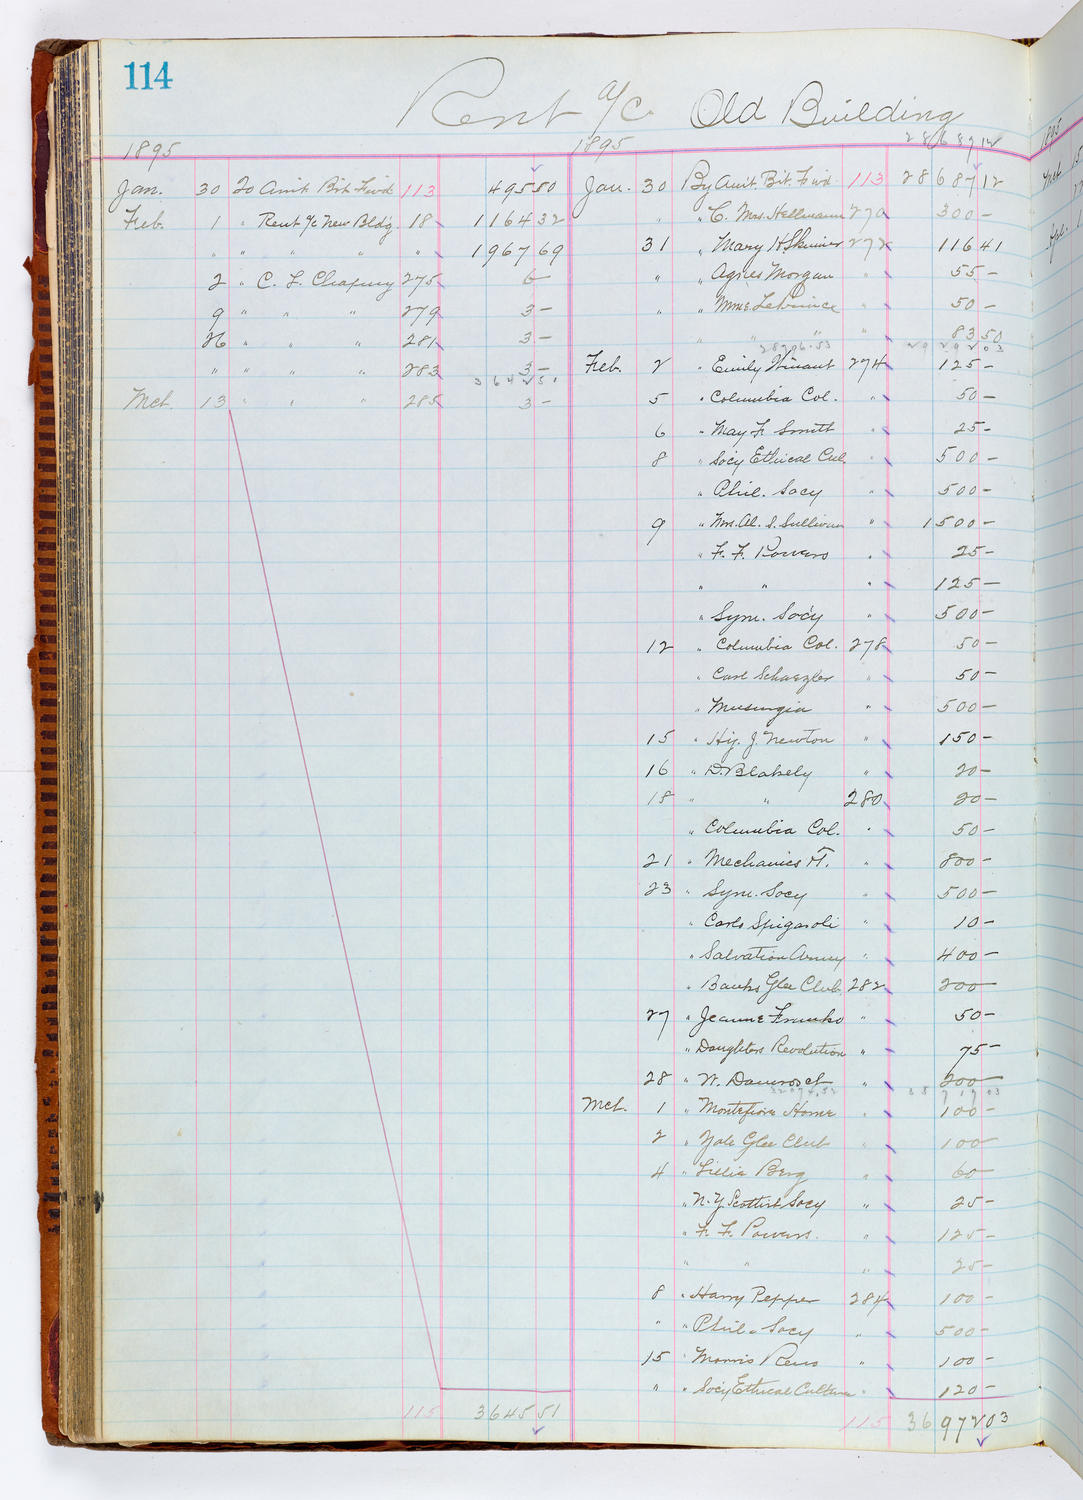 114
Rent a/c Old Building
28687 12
1895
Jan. 30 To Amt. Brt. Fwd. 113 495 50
Feb. 1 " Rent a/c New Bldg. 18 1164 32
" " " " " " 1967 69
2 " C. L. 275 6 -
9 " " " 279 3 -
26 " " " 281 3 -
" " " " 283 3 -
3642 51
Mch. 13 " " " 285 3 -
115 3645 51
1895
Jan. 30 By Amt. Brt. Fwd. 113 28687 12
" " C. Mrs. Hellmann 270 300 -
31 " Mary H. Skinner 272 116 41
" " Agnes Morgan " 55 -
" " Mme. " 50 -
" " " " 83 50
28796.53 29292 03
Feb. 2 " Emily Winant 274 125 -
5 " Columbia Col. " 50 -
6 " May F. Smith " 25 -
8 " Socy Ethical Cul. " 500 -
" Phil. Socy " 500 -
9 " Mrs. Al. S. Sullivan " 1500 -
" F. F. Powers " 25 -
" " " 125 -
" Sym. Soc'y " 500 -
12 " Columbia Col. 278 50 -
" Carl Schaezler " 50 -
" Musurgia " 500 -
15 " Hy. J. Newton " 150 -
16 " D. Blakely " 20 -
18 " " 280 20 -
" Columbia Col. " 50 -
21 " Mechanics " 800 -
23 " Sym. Socy " 500 -
" Carlo Spigaroli " 10 -
" Salvation Army " 400 -
" Banks Glee Club 282 200 -
27 " Jeanne Franko " 50 -
" Daughters Revolution " 75 -
28 " W. Damrosch " 200 -
Mch. 1 " Montefiore Home " 100 -
2 " Yale Glee Club " 100 -
4 " Lillie Berg " 60 -
" N. Y. Scottish Socy " 25 -
" F. F. Powers. " 125 -
" " " 25 -
8 " Harry Pepper 284 100 -
" " Phil. Socy " 500 -
15 " Morris Reno " 100 -
" " Socy Ethical Culture " 120 -
115 36972 03